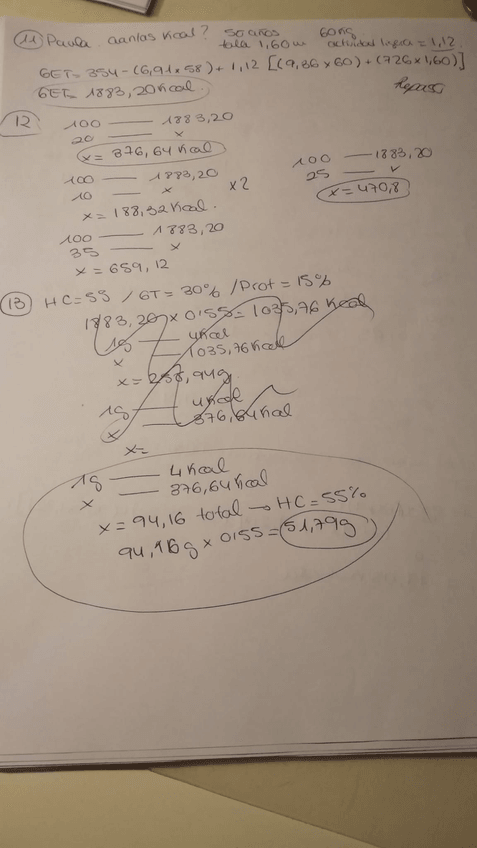 11 Paula. cuantas Kcal? 50 años 60 kg
talla 1,60 m actividad ligera = 1,12
GET = 354 - (6,91 x 58) + 1,12 [(9,36 x 60) + (726 x 1,60)]
GET = 1883,20 Kcal. Repaso
12 100 — 1883,20
20 — x
x = 376,64 Kcal
100 — 1883,20
25 — x
x = 470,8
100 — 1883,20
10 — x x2
x = 188,32 Kcal.
100 — 1883,20
35 — x
x = 659,12
13 HC = 55 / GT = 30% / Prot = 15%
1883,20 x 0'55 = 1035,76 Kcal
1g — 4Kcal
x — 1035,76 Kcal
x = 258,94g
1g — 4Kcal
x — 376,64 Kcal
x =
1g — 4 Kcal
x — 376,64 Kcal
x = 94,16 total → HC = 55%
94,16g x 0'55 = 51,79g